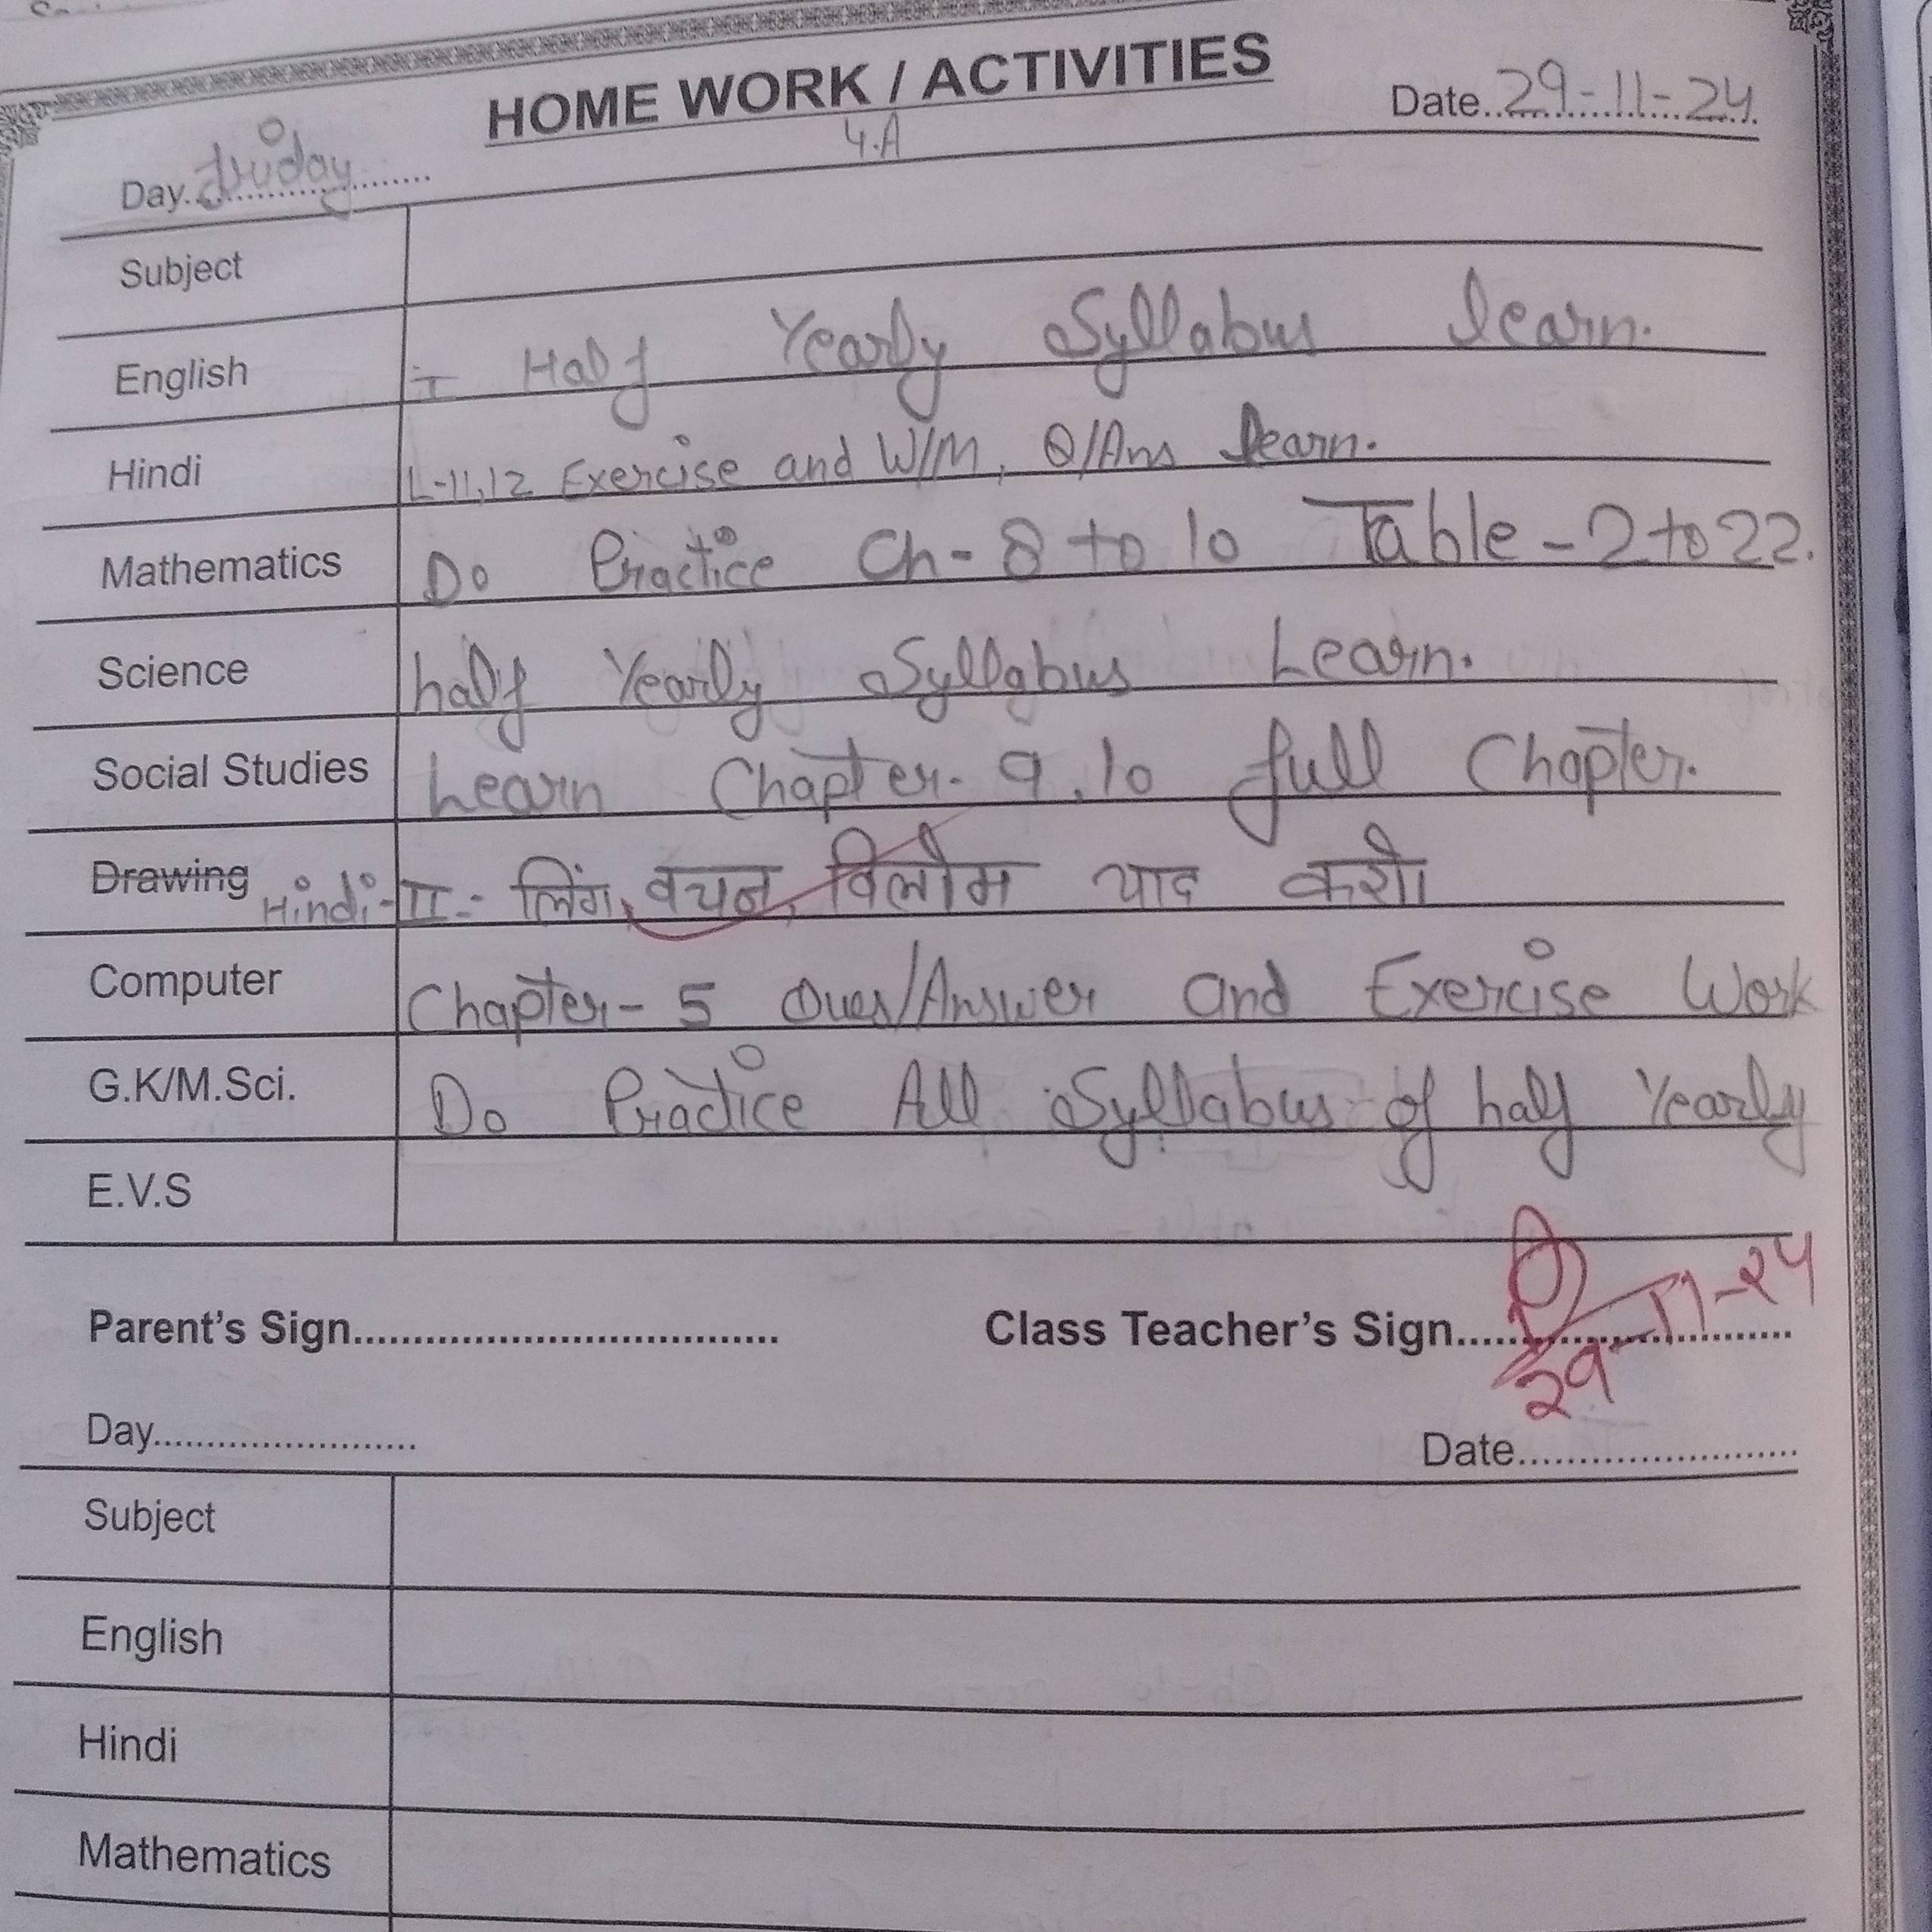 HOME WORK / ACTIVITIES
4.A
Day..Friday.......... Date..29-11-24
Subject
English I Half Yearly Syllabus learn.
Hindi L-11,12 Exercise and W/M, Q/Ans learn.
Mathematics Do Practice Ch-8 to 10 Table-2 to 22.
Science half Yearly Syllabus Learn.
Social Studies Learn Chapter-9,10 full Chapter.
Drawing Hindi-II:- लिंग, वचन, विलोम याद करो।
Computer Chapter-5 Ques/Answer and Exercise Work
G.K/M.Sci. Do Practice All Syllabus of half Yearly
E.V.S
Parent's Sign.................................... Class Teacher's Sign............................ 29-11-24
Day........................ Date........................
Subject
English
Hindi
Mathematics